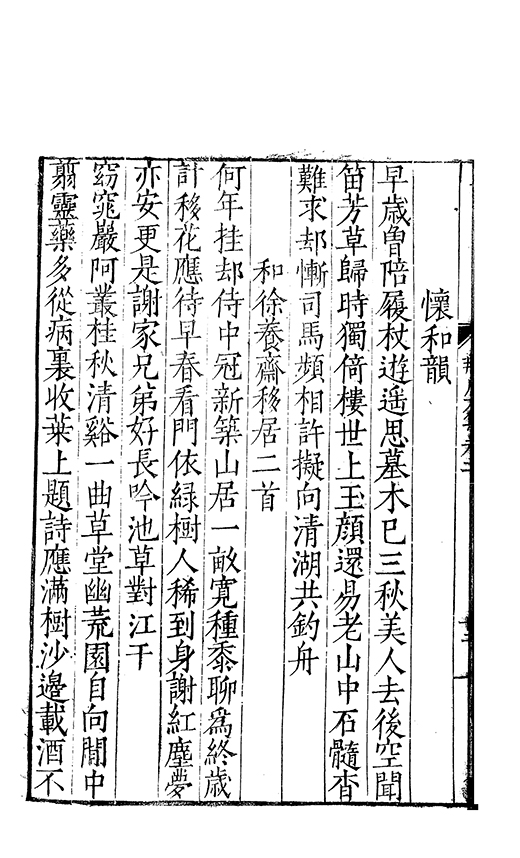 懷和韻
早歲曾陪履杖遊遥思墓木已三秋美人去後空聞
笛芳草歸時獨倚樓世上玉顏還易老山中石髓杳
難求却慚司馬頻相許擬向清湖共釣舟
和徐養齋移居二首
何年挂却侍中冠新築山居一畝寬種黍聊爲終歲
計移花應待早春看門依綠樹人稀到身謝紅塵夢
亦安更是謝家兄弟好長吟池草對江干
窈窕巖阿叢桂秋清谿一曲草堂幽荒園自向閒中
翦靈藥多從病裏收葉上題詩應滿樹沙邊載酒不